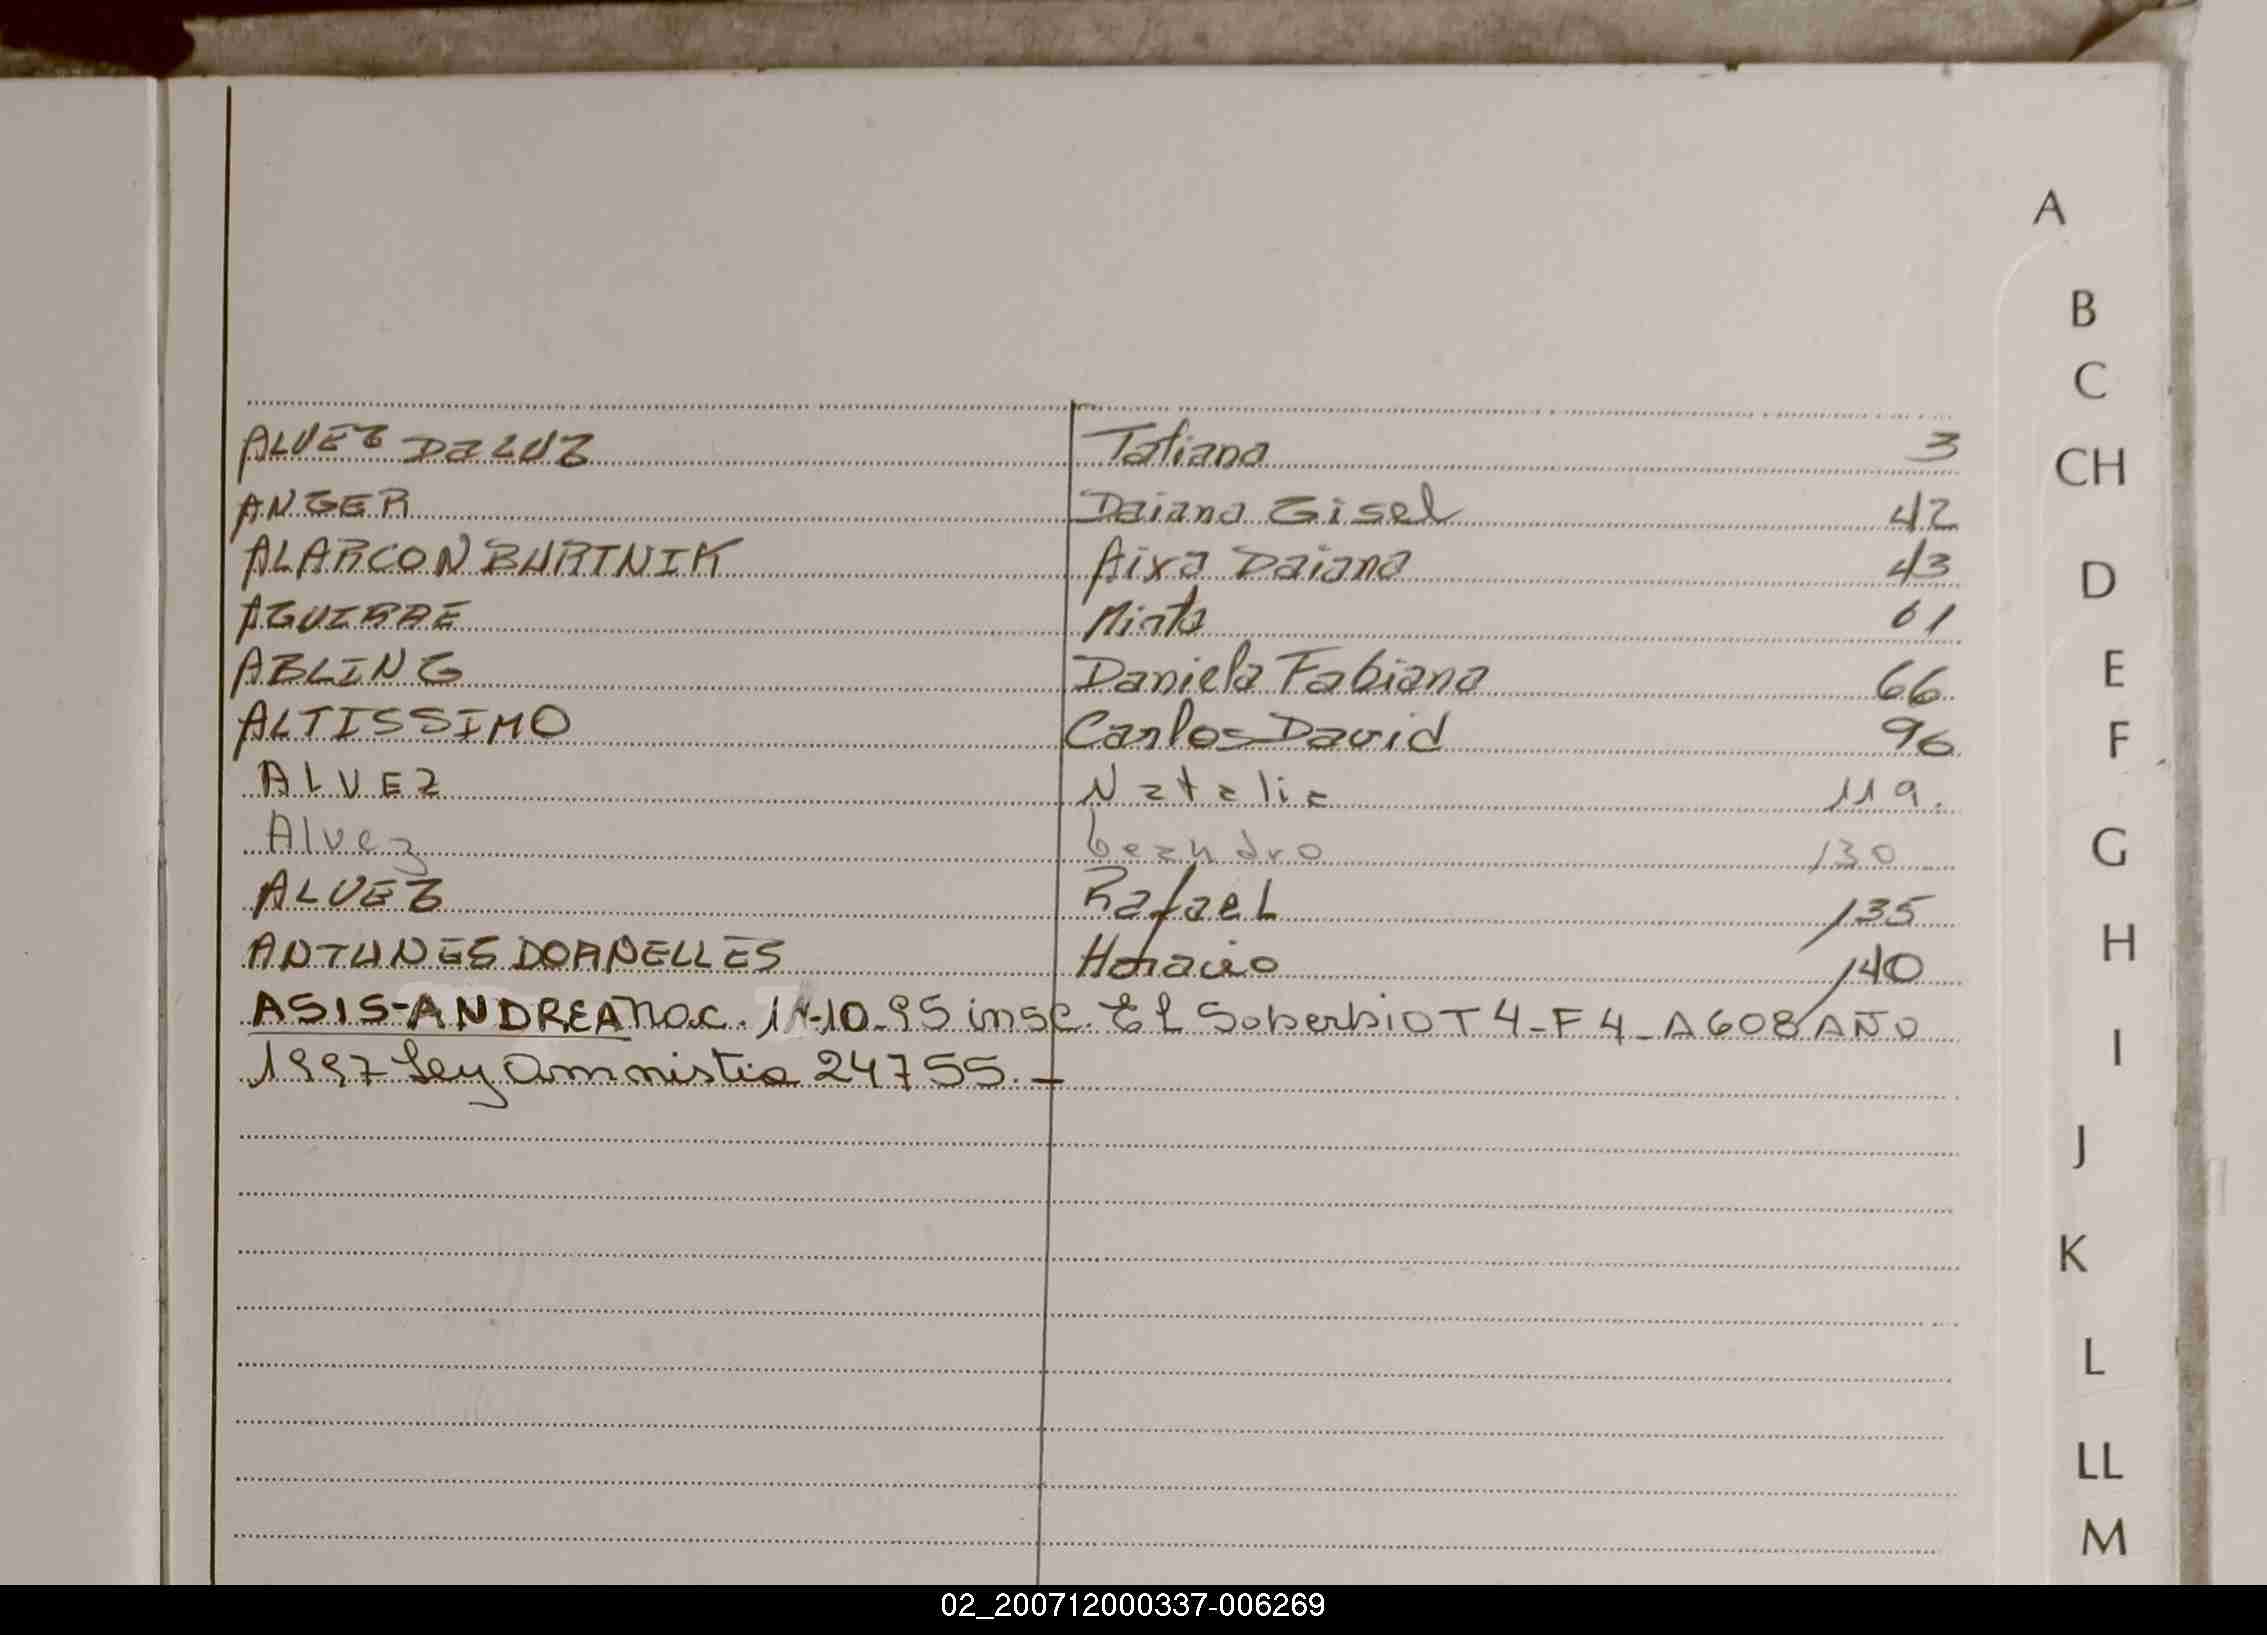 A
B
C
CH
D
E
F
G
H
I
J
K
L
LL
M
ALVEZ Da LUZ Tatiana 3
ANGER Daiana Gisel 42
ALARCON BURTNIK Aixa Daiana 43
AGUIRRE Mirta 61
ABLING Daniela Fabiana 66
ALTISSIMO Carlos David 96
ALVEZ Natalia 119.
Alvez Leandro 130
ALVEZ Rafael 135
ANTUNES DORNELLES Horacio 140
ASIS-ANDREA nac. -10-95 insc. El Soberbio T 4-F 4-A 608 AÑO
1997 Ley Amnistia 24755.-
02_200712000337-006269